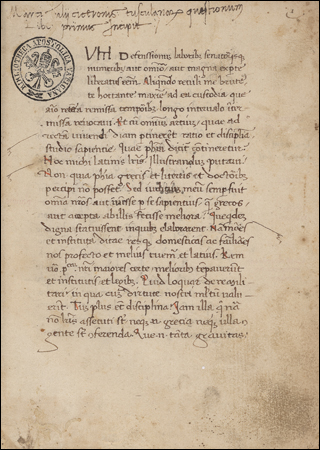 Marci tulii ciceronis tusculanar quæstionum
Lib primus incipit
BIBLIOTHECA APOSTOLICA VATICANA
Defensionum laboribus senatoriisq
muneribus aut omino aut magna ex pte
liberatus eem. Aliquando retuli me brute
te hortante maxie ad ea studia que
aio remissa temporibus longo intervallo iter
missa revocavi. Et cu omnium artium quae ad
recta vivendi viam ptineret ratio et disciplia
studio sapientie quae phia dicit contineretur.
Hoc michi latinis lris illustrandum putavi
Non quia phia grecis et literis et doctoribus
percipi no posset. Sed meu semp fuit
omia nros aut invenisse p se sapientius q grecos
aut accepta ab illis fecisse meliora. Que qdem
digna statuissent in quibus elaborarent. Na mores
et instituta vite resq domesticas ac familiares
nos profecto et melius tuemur et latius. Rem
vo p nri maiores certe melioribus teperaverut
et institutis et legibus. Quid loquar de re mili
tari in qua cum virtute nostri multum valu
erut tum plus et disciplina. Iam illa que na
no lris assecuti st neq cu grecia neq ulla cu
gente st conferenda. Que n tata gravitas